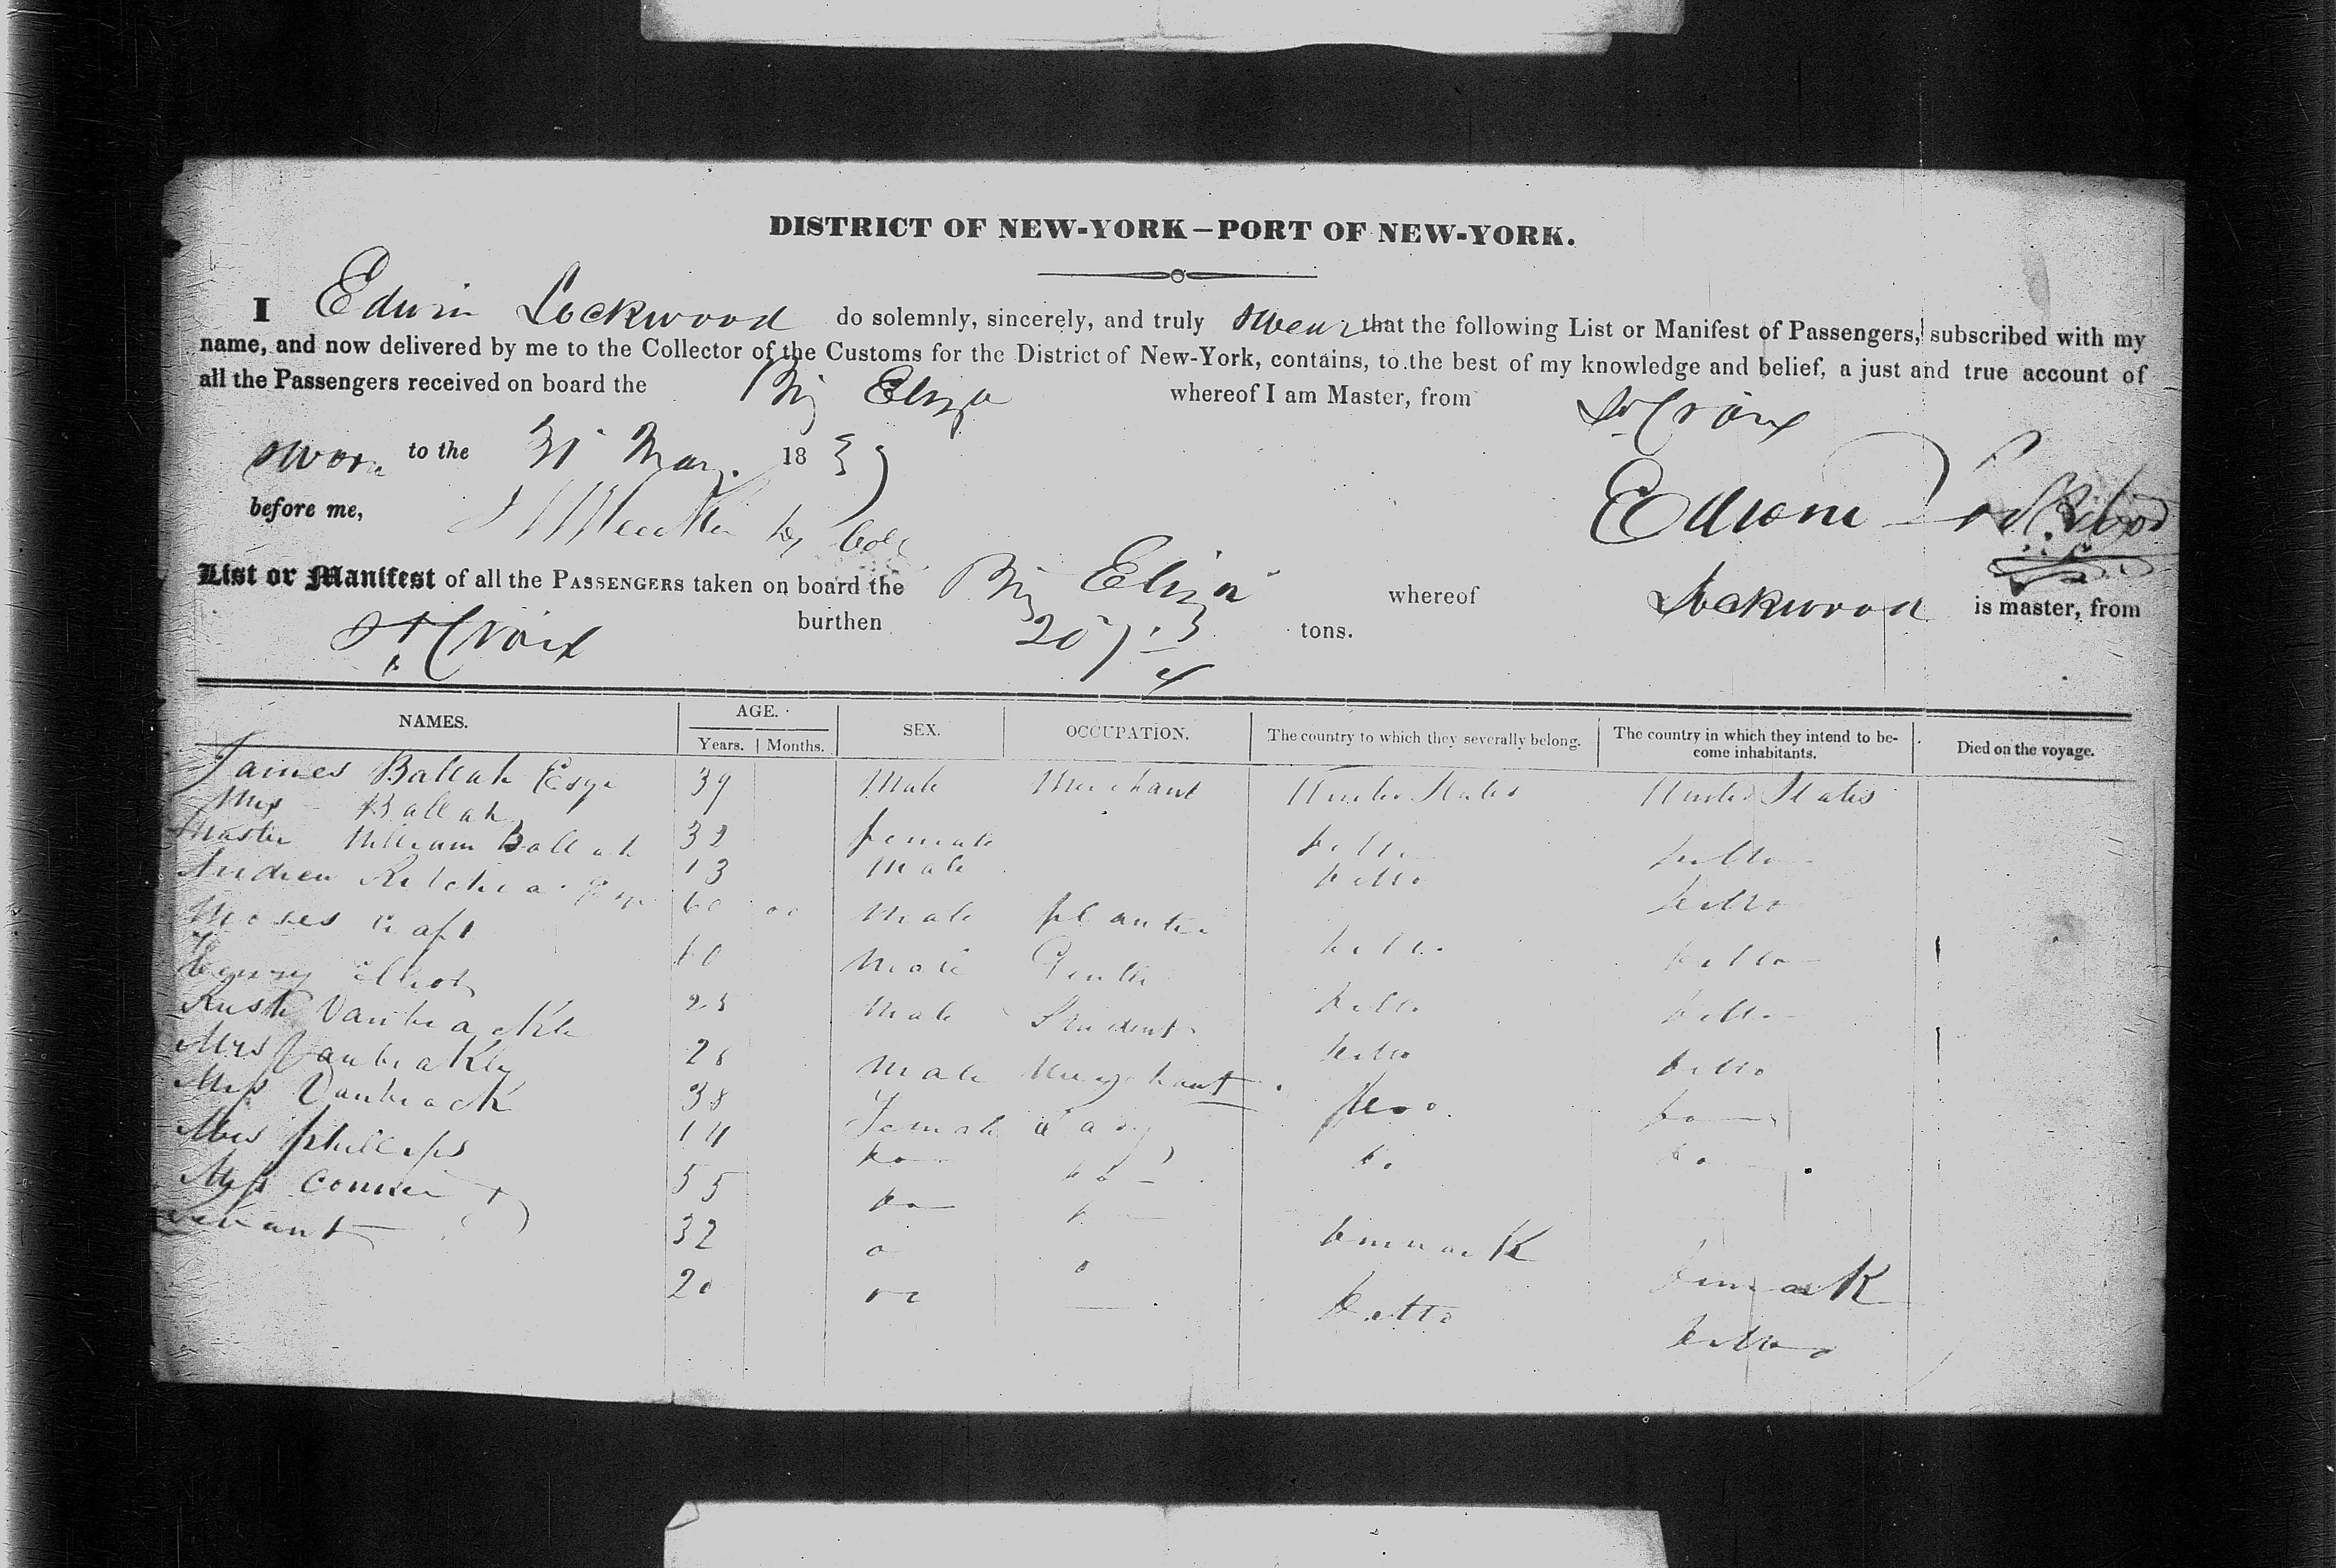 DISTRICT OF NEW-YORK—PORT OF NEW-YORK.
I Edwin Lockwood do solemnly, sincerely, and truly swear that the following List or Manifest of Passengers, subscribed with my
name, and now delivered by me to the Collector of the Customs for the District of New-York, contains, to the best of my knowledge and belief, a just and true account of
all the Passengers received on board the Brig Eliza whereof I am Master, from St Croix
sworn to the 31 May. 1839
before me, Coll Edwin Lockwood
List or Manifest of all the PASSENGERS taken on board the Brig Eliza whereof Lockwood is master, from
St Croix burthen 207 3/4 tons.
NAMES. AGE. SEX. OCCUPATION. The country to which they severally belong. The country in which they intend to be-
come inhabitants. Died on the voyage.
Years. Months.
James Ballah Esqr 39 Male Merchant United States United States
Mrs Ballah 32 female ditto ditto
Master William Ballah 13 Male ditto ditto
Andrew 60 Male planter ditto ditto
Moses 60 Male ditto ditto
Elliot 25 Male Student ditto ditto
Vanbrackle 26 Male Merchant
Mrs Vanbrakle 38 Female Lady Do Do
Miss Vanbrack 14 Do Do
Mrs phillips 55 Do Denmark Denmark
Miss 32 ditto ditto
servant 20